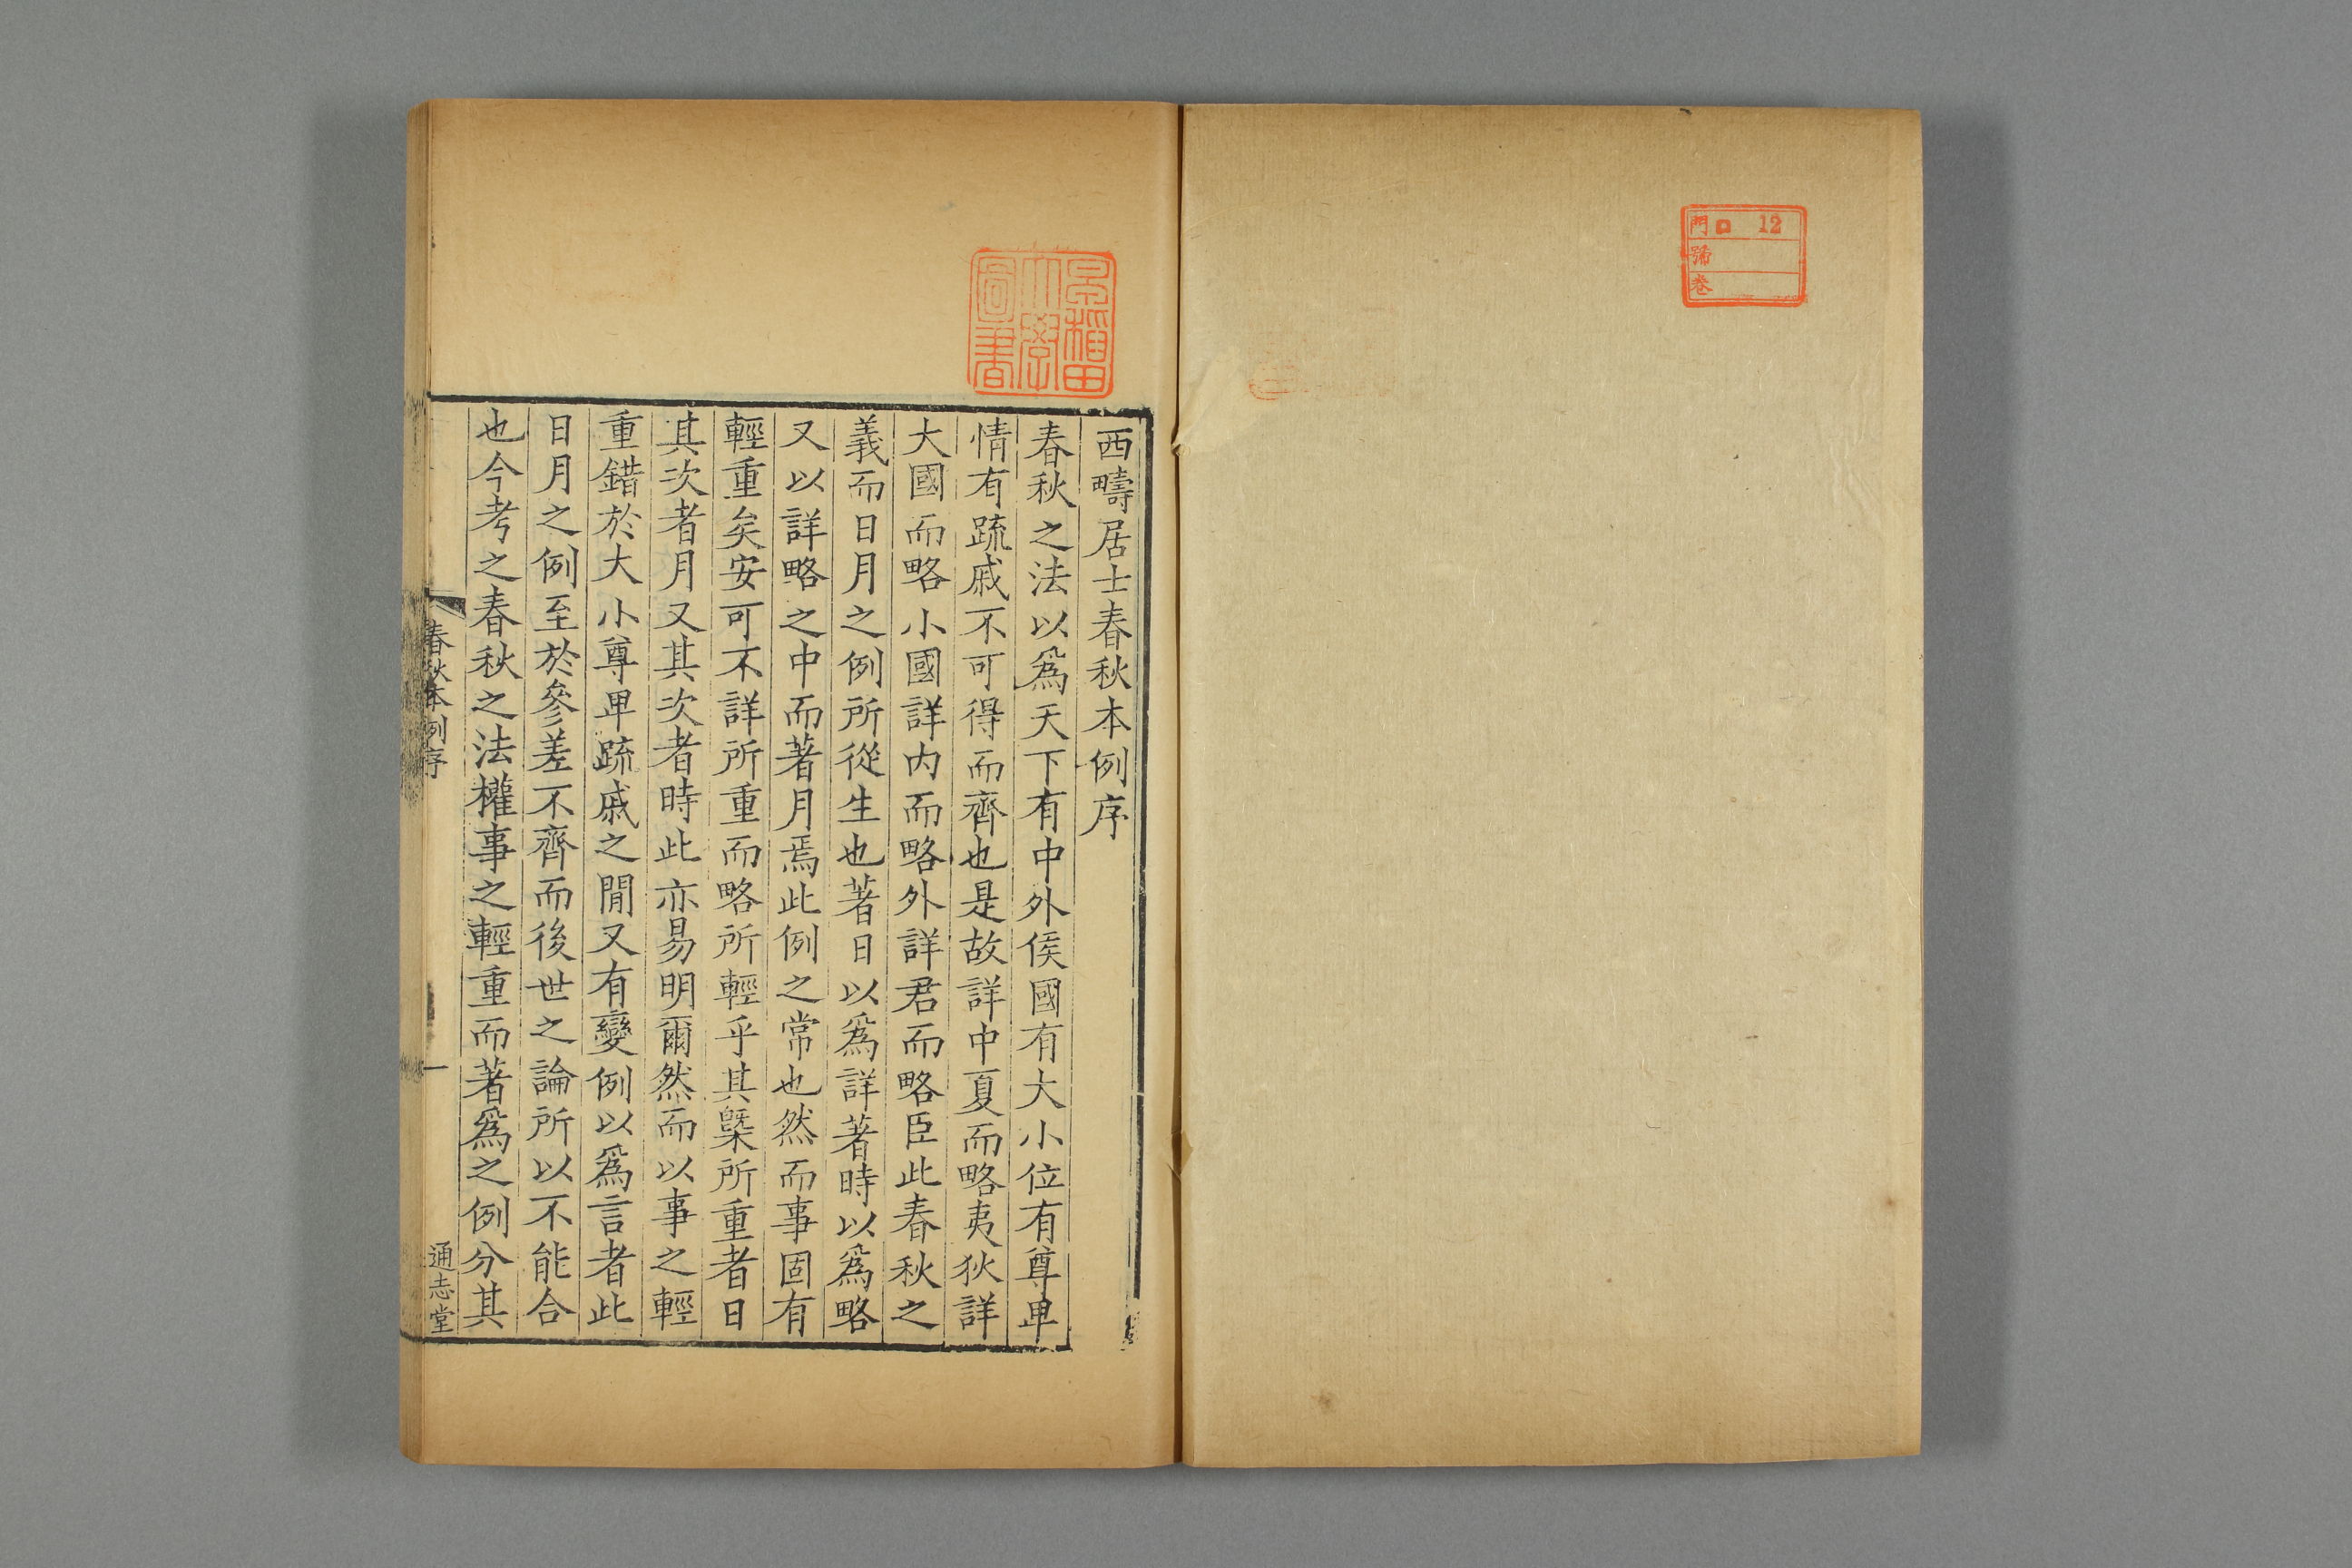 門 ロ 12
號
卷
早稲田
大學
圖書
西疇居士春秋本例序
春秋之法以爲天下有中外侯國有大小位有尊卑
情有疏戚不可得而齊也是故詳中夏而略夷狄詳
大國而略小國詳内而略外詳君而略臣此春秋之
義而日月之例所從生也著日以爲詳著時以爲略
又以詳略之中而著月焉此例之常也然而事固有
輕重矣安可不詳所重而略所輕乎其槩所重者日
其次者月又其次者時此亦易明爾然而以事之輕
重錯於大小尊卑疏戚之閒又有變例以爲言者此
日月之例至於參差不齊而後世之論所以不能合
也今考之春秋之法權事之輕重而著爲之例分其
春秋本例序
一
通志堂